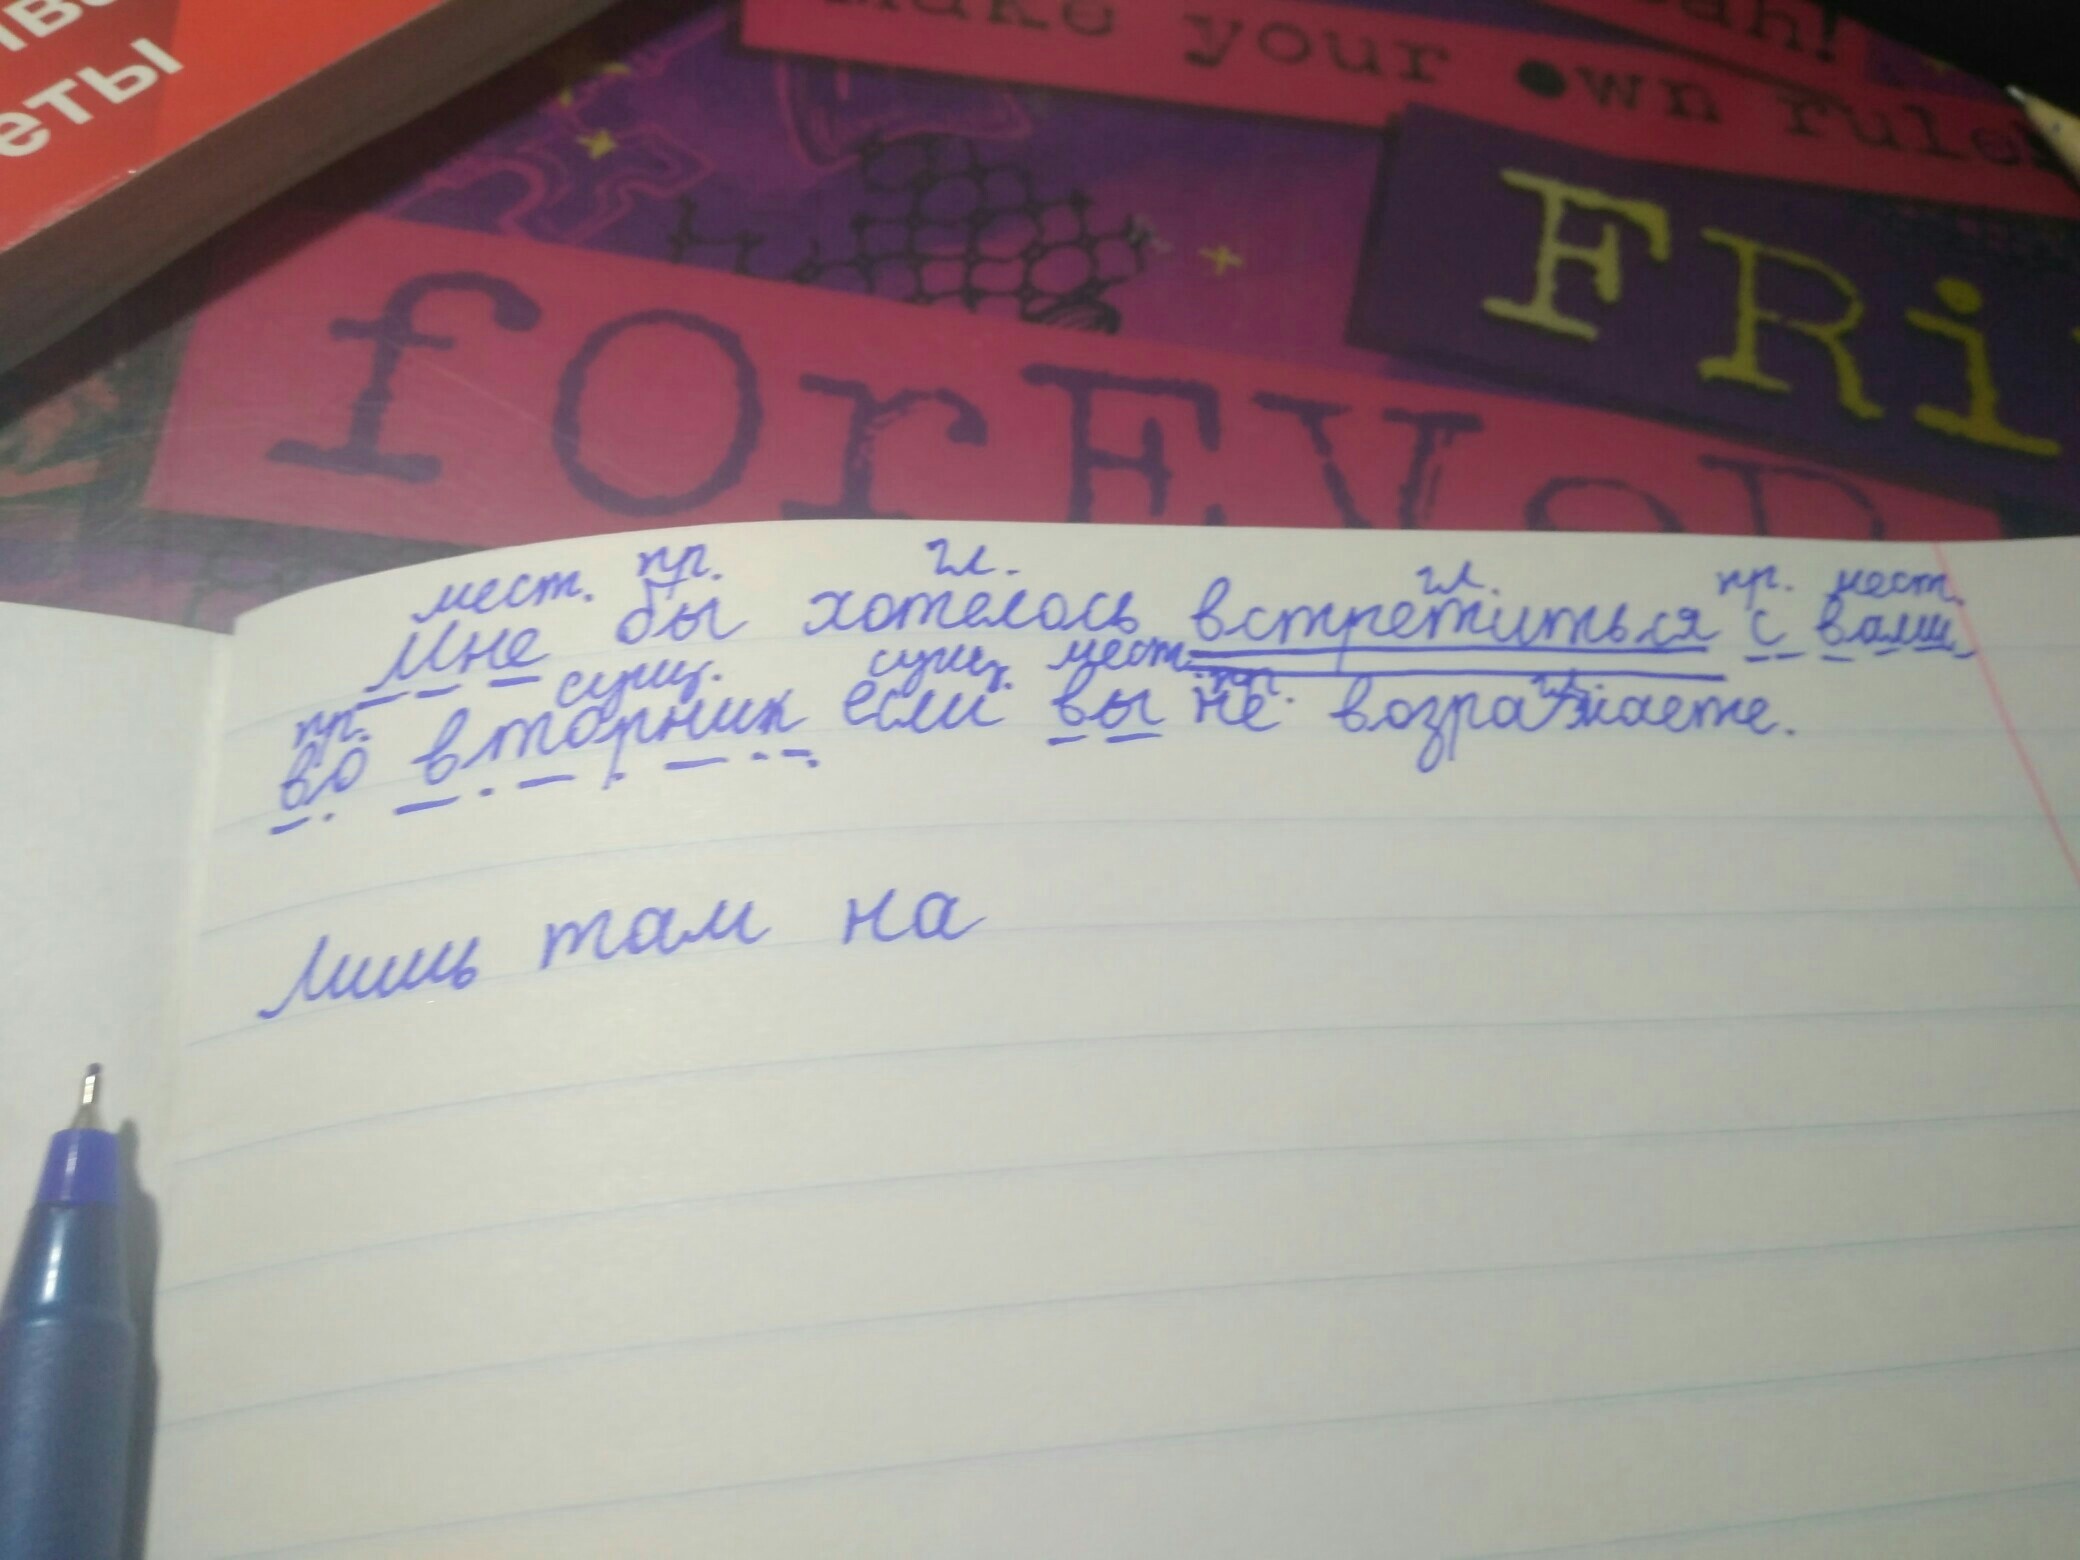 еты
make your own rules
ah!
FRi
forEVeR
мест. пр. гл. гл. пр. мест.
Мне бы хотелось встретиться с вами,
пр. сущ. сущ. мест. пр. гл.
во вторник если вы не возражаете.
Лишь там на